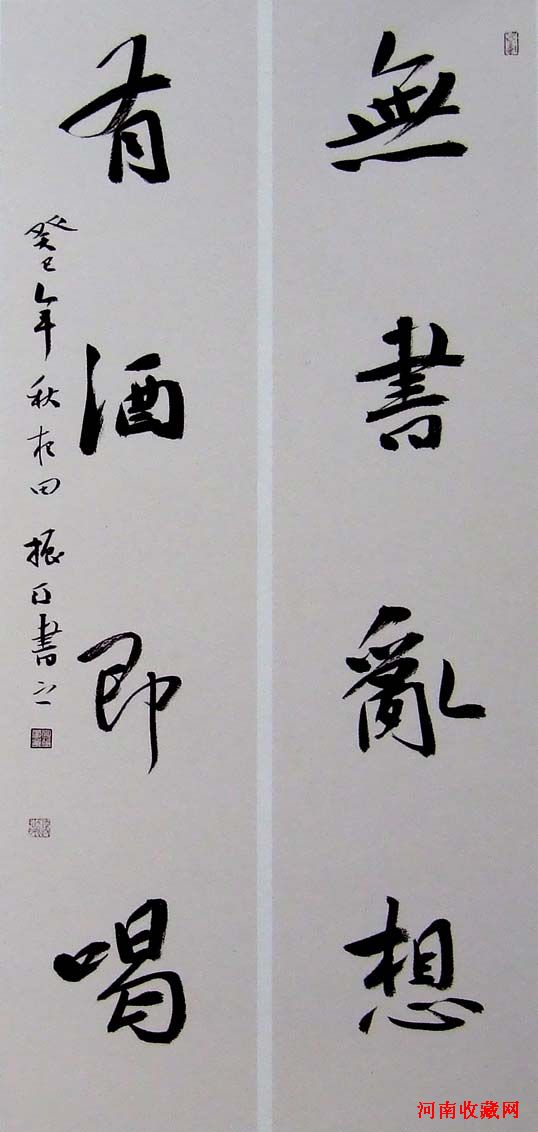 無書亂想
有酒即喝
癸巳年秋於田振正書之
河南收藏网